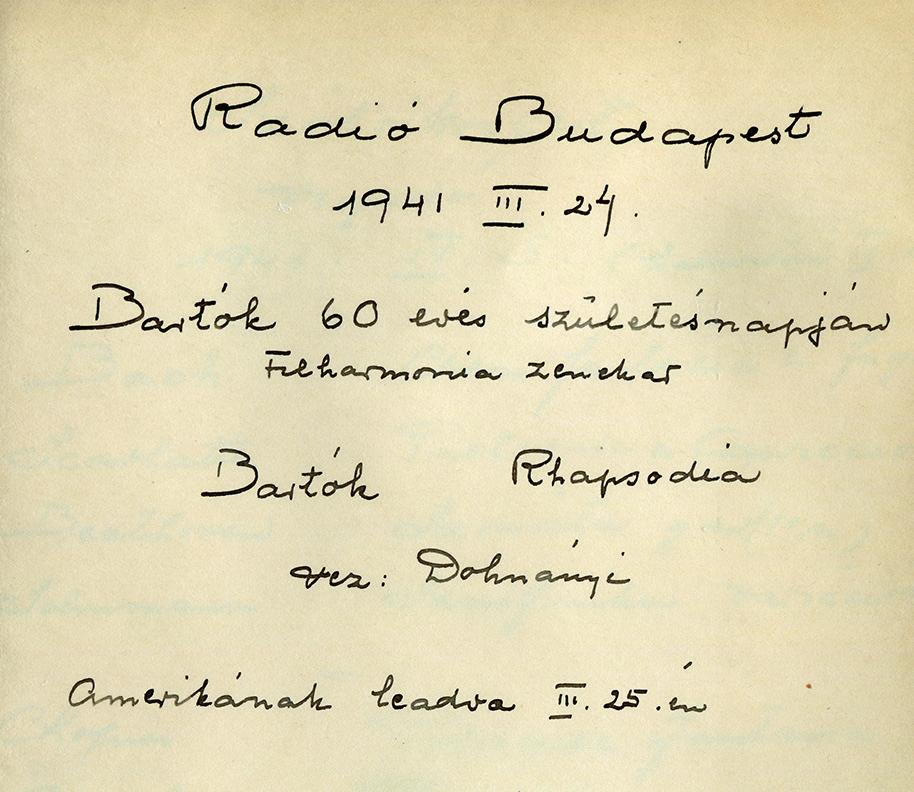 Radió Budapest
1941 III. 24.
Bartók 60 evés születésnapján
Filharmonia zenekar
Bartók Rhapsodia
vez: Dohnányi
Amerikának leadva III. 25.én